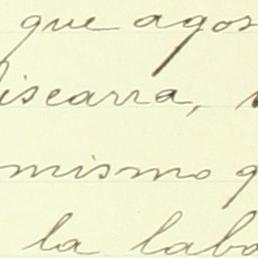 que agos
iscarra,
mismo q
la labo